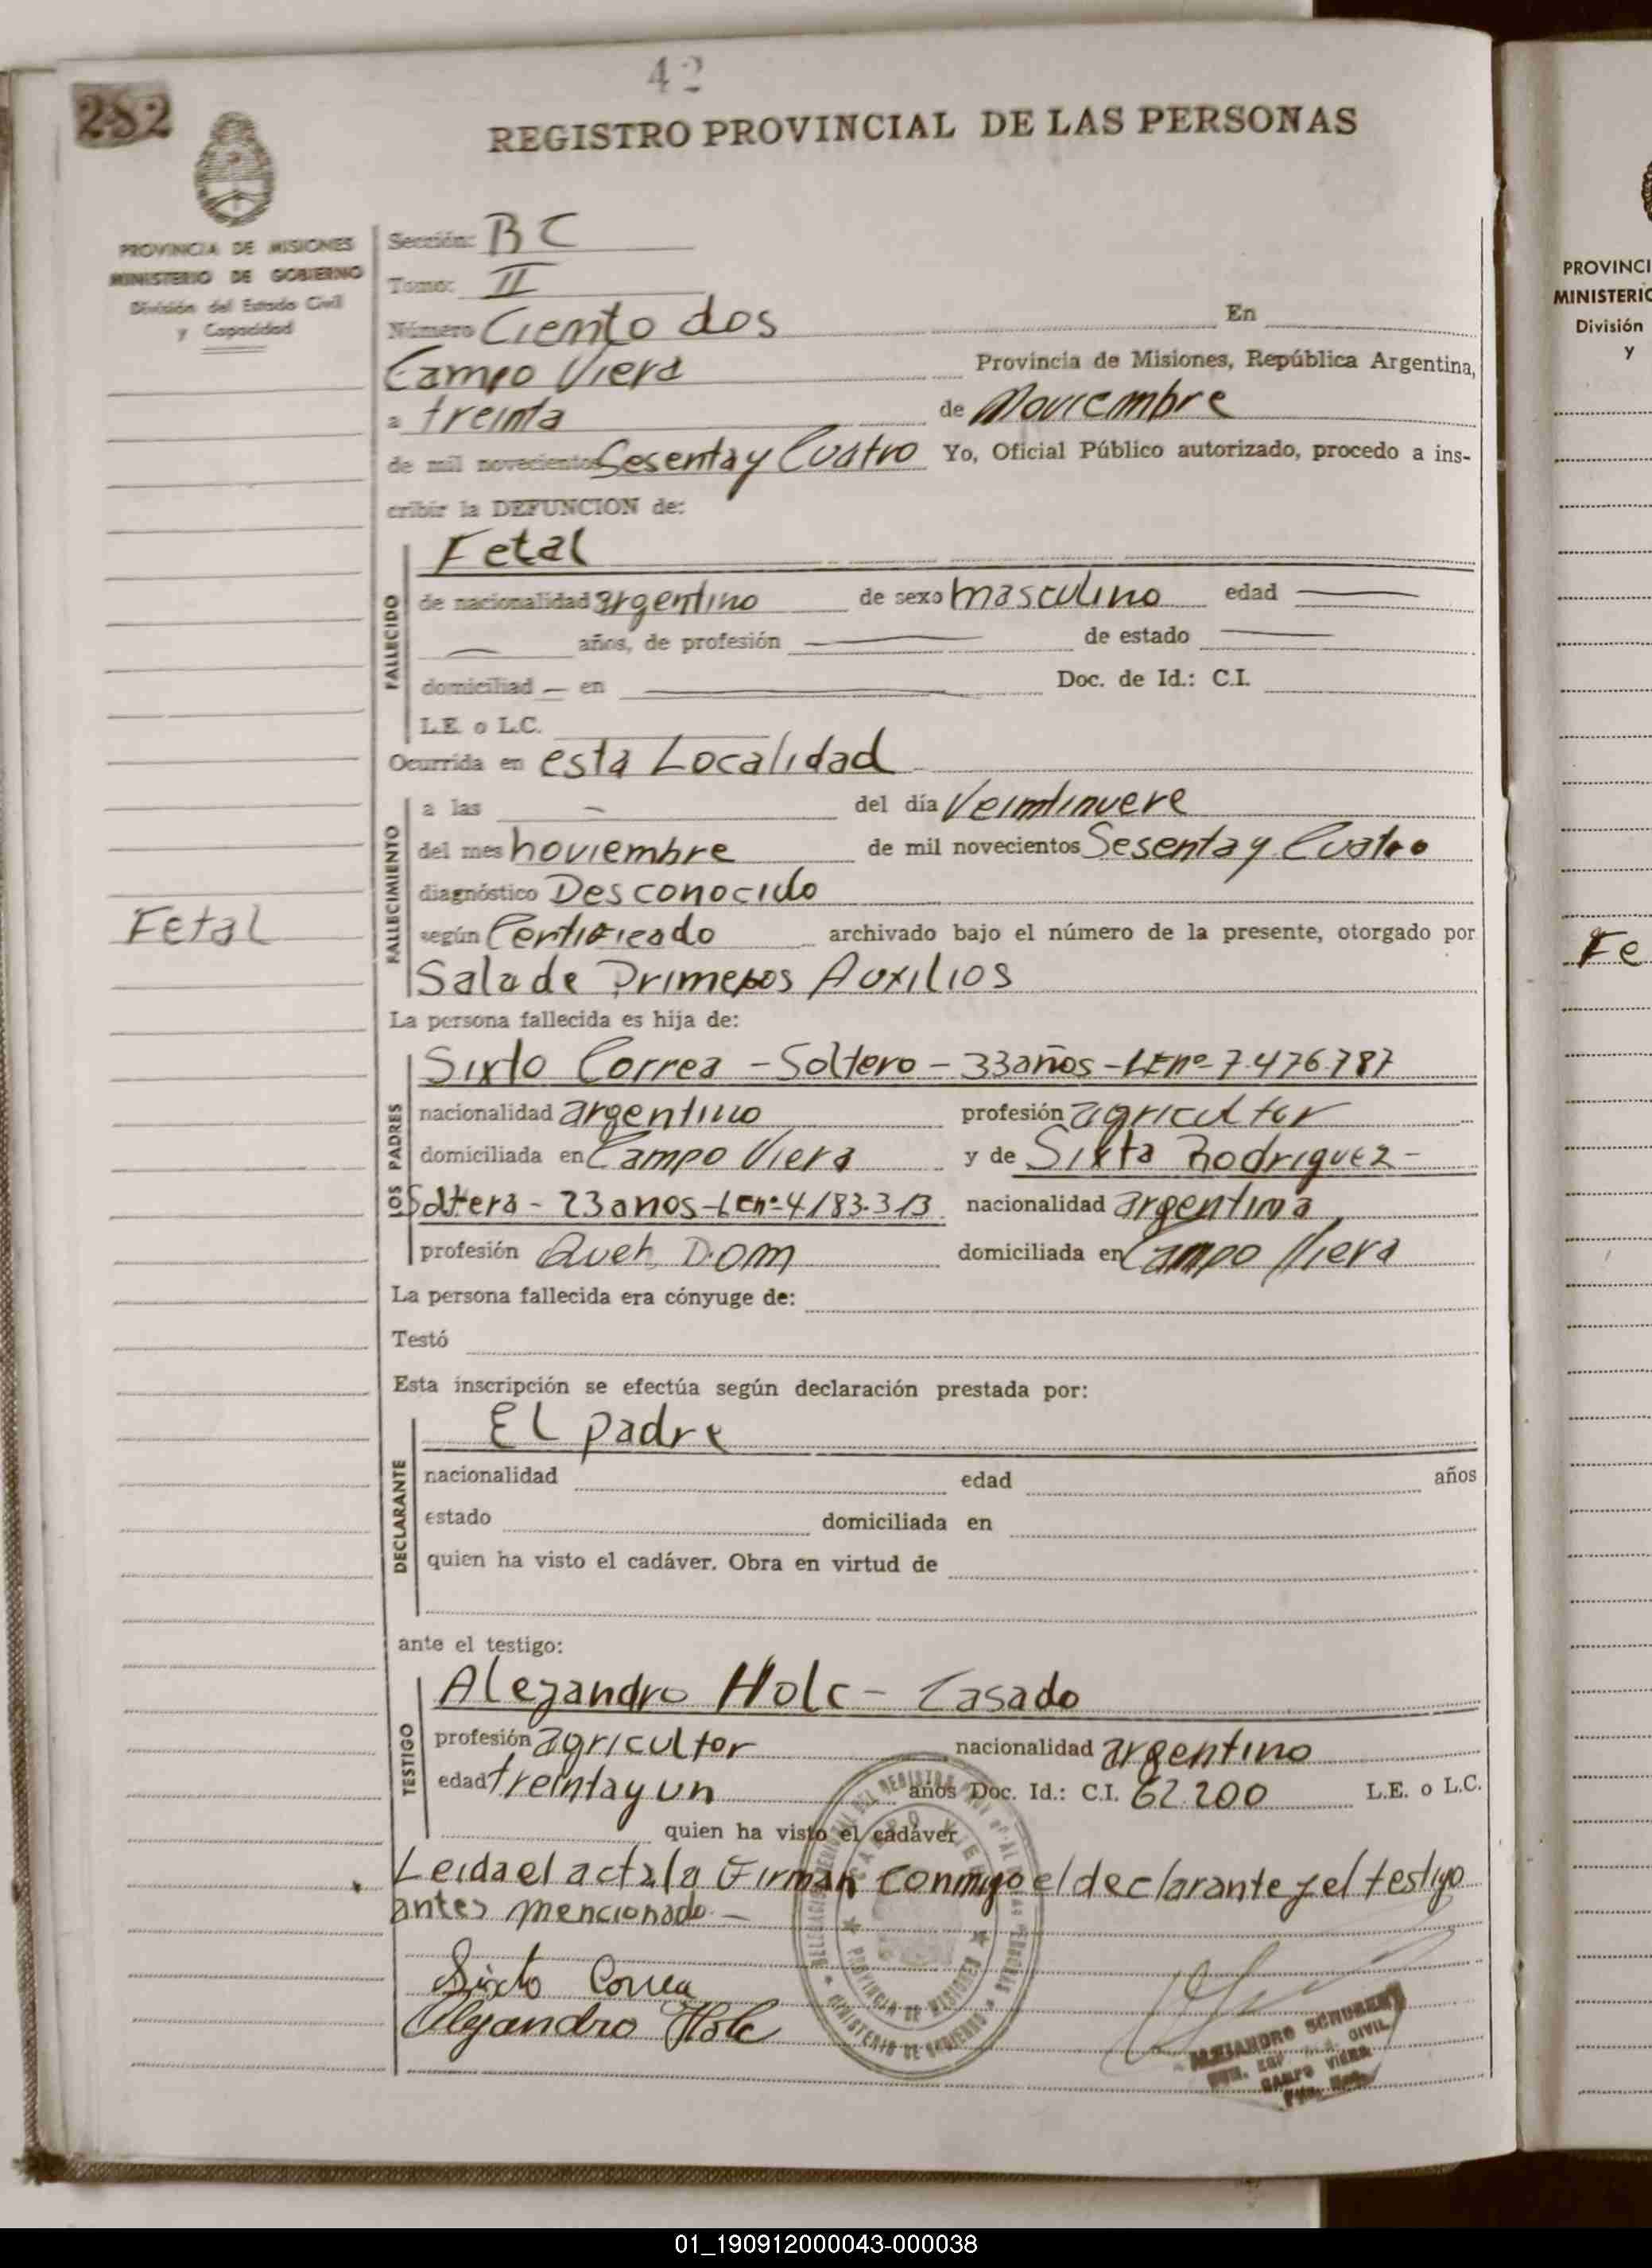 42
282
REGISTRO PROVINCIAL DE LAS PERSONAS
PROVINCIA DE MISIONES
MINISTERIO DE GOBIERNO
División del Estado Civil
y Capacidad
Sección: BC
Tomo: II
Número Ciento dos En
Campo Viera Provincia de Misiones, República Argentina,
a treinta de Noviembre
de mil novecientos Sesenta y Cuatro Yo, Oficial Público autorizado, procedo a ins-
cribir la DEFUNCION de:
FALLECIDO
Fetal
de nacionalidad argentino de sexo masculino edad
años, de profesión de estado
domiciliad en Doc. de Id.: C.I.
L.E. o L.C.
Ocurrida en esta Localidad
FALLECIMIENTO
a las del día Veintinueve
del mes noviembre de mil novecientos Sesenta y Cuatro
diagnóstico Desconocido
Fetal
según Certificado archivado bajo el número de la presente, otorgado por
Sala de Primeros Auxilios
La persona fallecida es hija de:
LOS PADRES
Sixto Correa - Soltero - 33 años - LE nº 7.476.787
nacionalidad argentino profesión agricultor
domiciliada en Campo Viera y de Sixta Rodriguez -
Soltera - 23 anos - LC nº 4183.313 nacionalidad argentina
profesión Queh. Dom domiciliada en Campo Viera
La persona fallecida era cónyuge de:
Testó
Esta inscripción se efectúa según declaración prestada por:
DECLARANTE
El padre
nacionalidad edad años
estado domiciliada en
quien ha visto el cadáver. Obra en virtud de
ante el testigo:
TESTIGO
Alejandro Holc - Casado
profesión agricultor nacionalidad argentino
edad treinta y un años Doc. Id.: C.I. 62.200 L.E. o L.C.
quien ha visto el cadáver
Leida el acta la Firman conmigo el declarante y el testigo
antes mencionado -
Sixto Correa
Alejandro Holc
PROVINCIA DE MISIONES
MINISTERIO DE GOBIERNO
ALEJANDRO SCHUBERT
CAMPO VIERA
PROVINCI
MINISTERIO
División
y
Fe
01_190912000043-000038